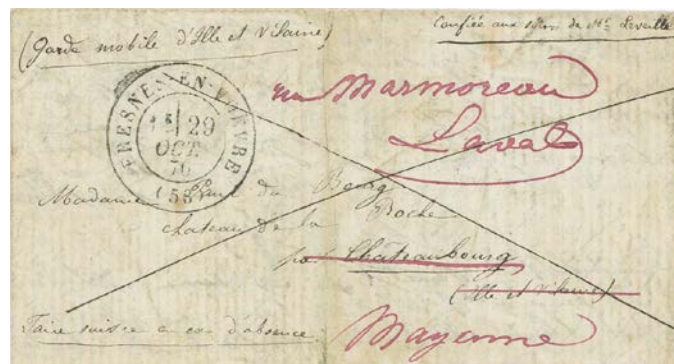 (Garde mobile d'Ille et Vilaine)
Confiée aux soins de Mr Leveillé
FRESNES-EN-WOEVRE
29
OCT.
70
(53)
rue Marmoreau
Laval
Madame Paul du Bourg
chateau de la Roche
par Chateaubourg
(Ille et Vilaine)
Faire suivre en cas d'absence
Mayenne